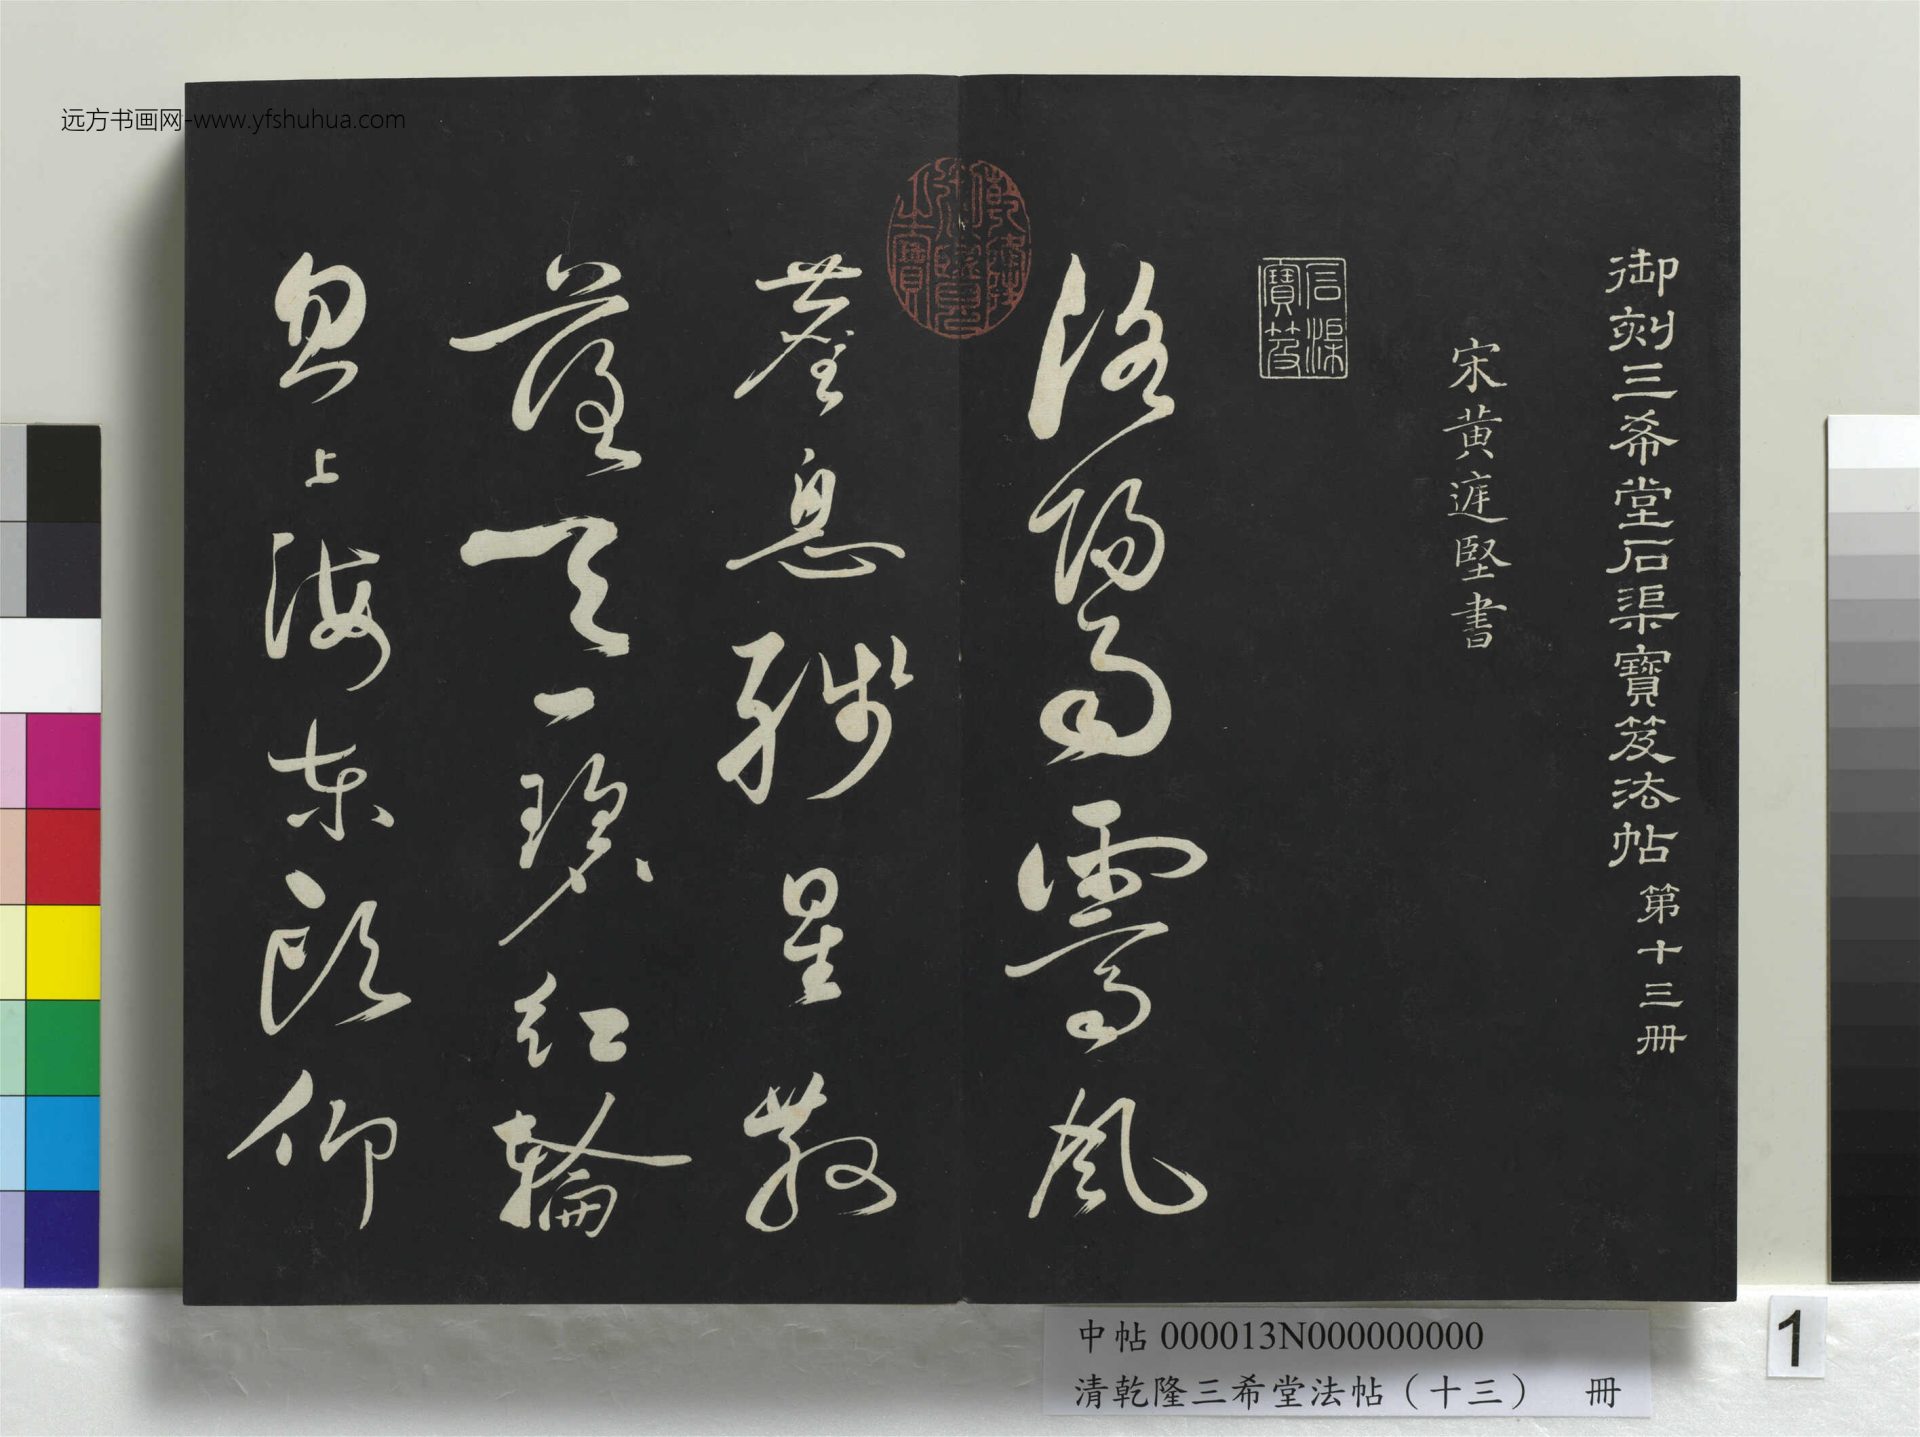 远方书画网-www.yfshuhua.com
御刻三希堂石渠寶笈法帖第十三冊
宋黃庭堅書
石渠寶笈
洛陽雨霽風
乾隆御覽之寶
塵息殘星散
落天一碧紅輪
忽上海東頭仰
中帖 000013N000000000
清乾隆三希堂法帖（十三） 冊
1